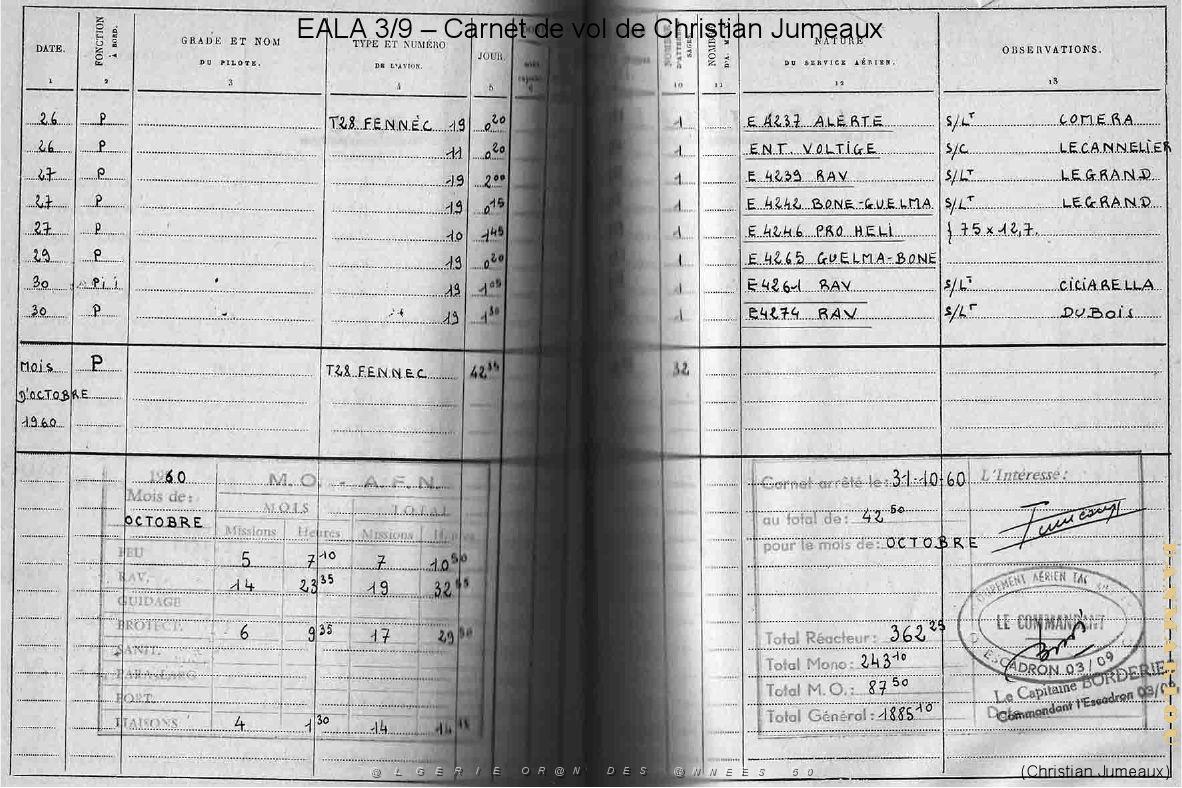 EALA 3/9 – Carnet de vol de Christian Jumeaux
DATE. FONCTION A BORD. GRADE ET NOM DU PILOTE. TYPE ET NUMÉRO DE L'AVION. JOUR. NATURE DU SERVICE AÉRIEN. OBSERVATIONS.
1 2 3 4 5 10 11 12 13
26 P T28 FENNEC 19 0 20 1 E 4237 ALERTE S/LT COMERA
26 P 11 0 20 1 ENT. VOLTIGE S/C LECANNELIER
27 P 19 2 00 1 E 4239 RAV S/LT LEGRAND
27 P 19 0 15 1 E 4242 BONE-GUELMA S/LT LEGRAND
27 P 10 1 45 1 E 4246 PRO HELI } 75 x 12,7.
29 P 19 0 20 1 E 4265 GUELMA-BONE
30 19 1 05 1 E4261 RAV S/LT CICIARELLA
30 P 19 1 30 1 E4274 RAV S/LT DUBOIS
MOIS P T28 FENNEC 42 35 32
D'OCTOBRE
1960
1960 M.O. - A.F.N.
Mois de: MOIS TOTAL
OCTOBRE Missions Heures Missions Heures
FEU 5 7 10 7 10 50
RAV. 14 23 35 19 32
GUIDAGE
PROTECT. 6 9 35 17 29
SANIT.
PORT.
LIAISONS 4 1 30 14 14
Carnet arrêté le: 31-10-60 L'Intéressé:
au total de: 42 50
pour le mois de: OCTOBRE
Jumeaux
Total Réacteur: 362 25
Total Mono: 243 10
Total M.O.: 87 50
Total Général: 1885 10
GROUPEMENT AÉRIEN TAC
LE COMMANDANT
ESCADRON 03/09
Le Capitaine BORDERIE
Commandant l'Escadron 03/09
@LGERIE OR@N DES @NNEES 50
(Christian Jumeaux)